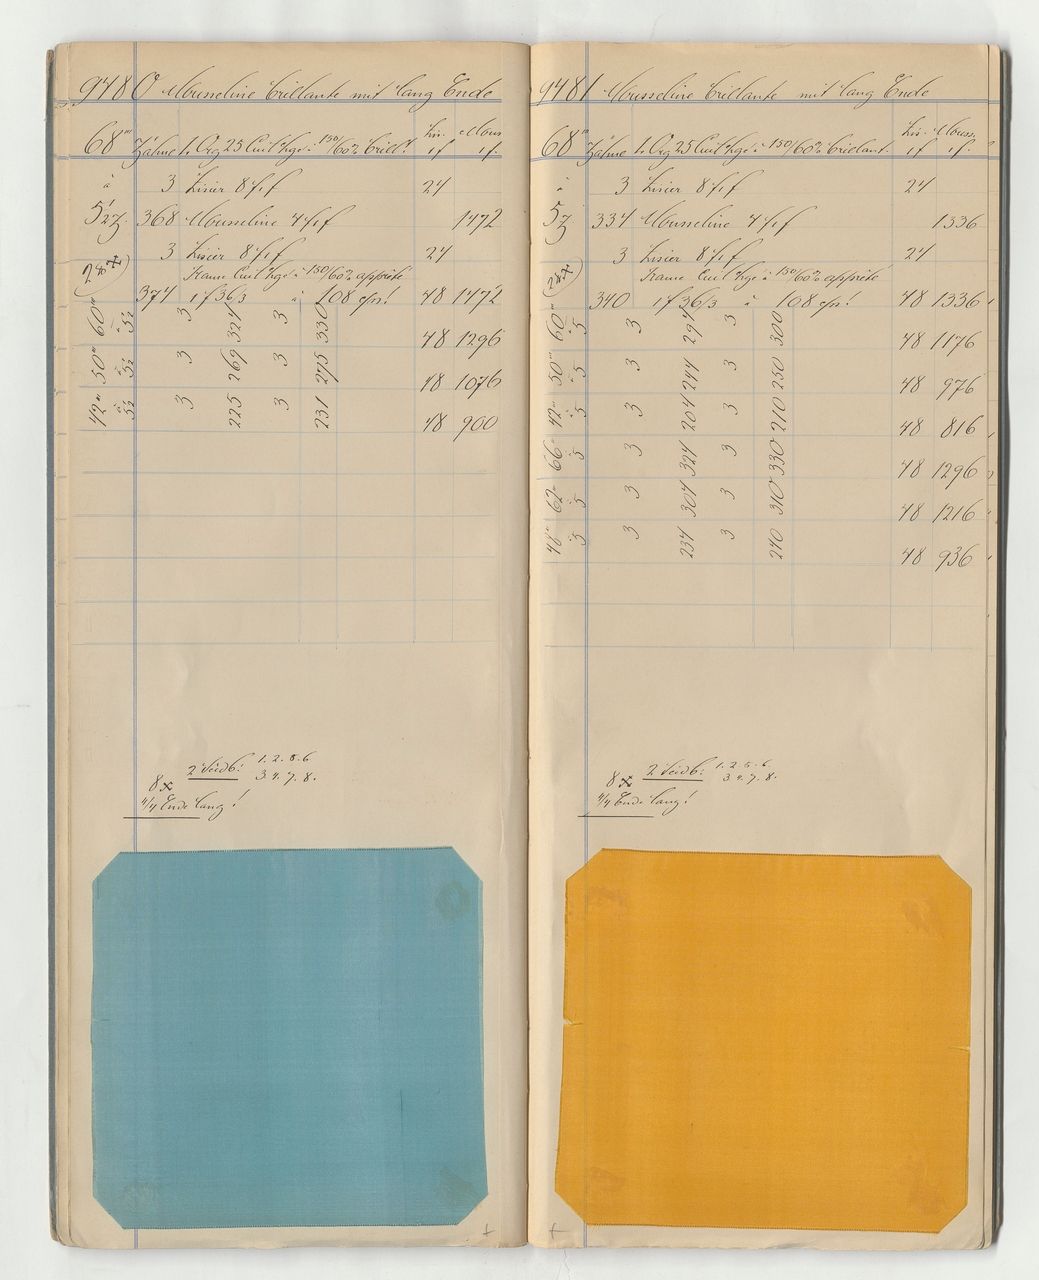 9480 Mousseline brillante mit lang Ende
Lis. Mouss.
68''' Zähne 1. Org 25 Cuit Hge à 150/60% brill.t 1f 1f.
à 3 Lisier 8f.1f 24
5½Z. 368 Mousseline 4f.1f 1472
3 Lisier 8f.1f 24
(28x) Trame Cuit Hge à 150/60% appreté
374 1f 36/3 à 108 cps! 48 1472
60''' à 5½ 3 324 3 330 48 1296
50''' à 5½ 3 269 3 275 48 1076
42''' à 5½ 3 225 3 231 48 900
8x 2 Seidb: 1. 2. 5. 6
3 4. 7. 8.
4/4 Ende lang!
9481 Mousseline brillante mit lang Ende
Lis. Mouss.
68''' Zähne 1. Org 25 Cuit Hge à 150/60% brillant. 1f 1f.
à 3 Lisier 8f.1f 24
5Z 334 Mousseline 4f.1f 1336
3 Lisier 8f.1f 24
(28x) Trame Cuit Hge à 150/60% appreté
340 1f 36/3 à 108 cps! 48 1336
60''' à 5 3 294 3 300 48 1176
50''' à 5 3 244 3 250 48 976
42''' à 5 3 204 3 210 48 816
66''' 5 3 324 3 330 48 1296
62''' 5 3 304 3 310 48 1216
48''' 5 3 234 3 240 48 936
8x 2 Seidb: 1. 2. 5. 6
3 4. 7. 8.
4/4 Ende lang!